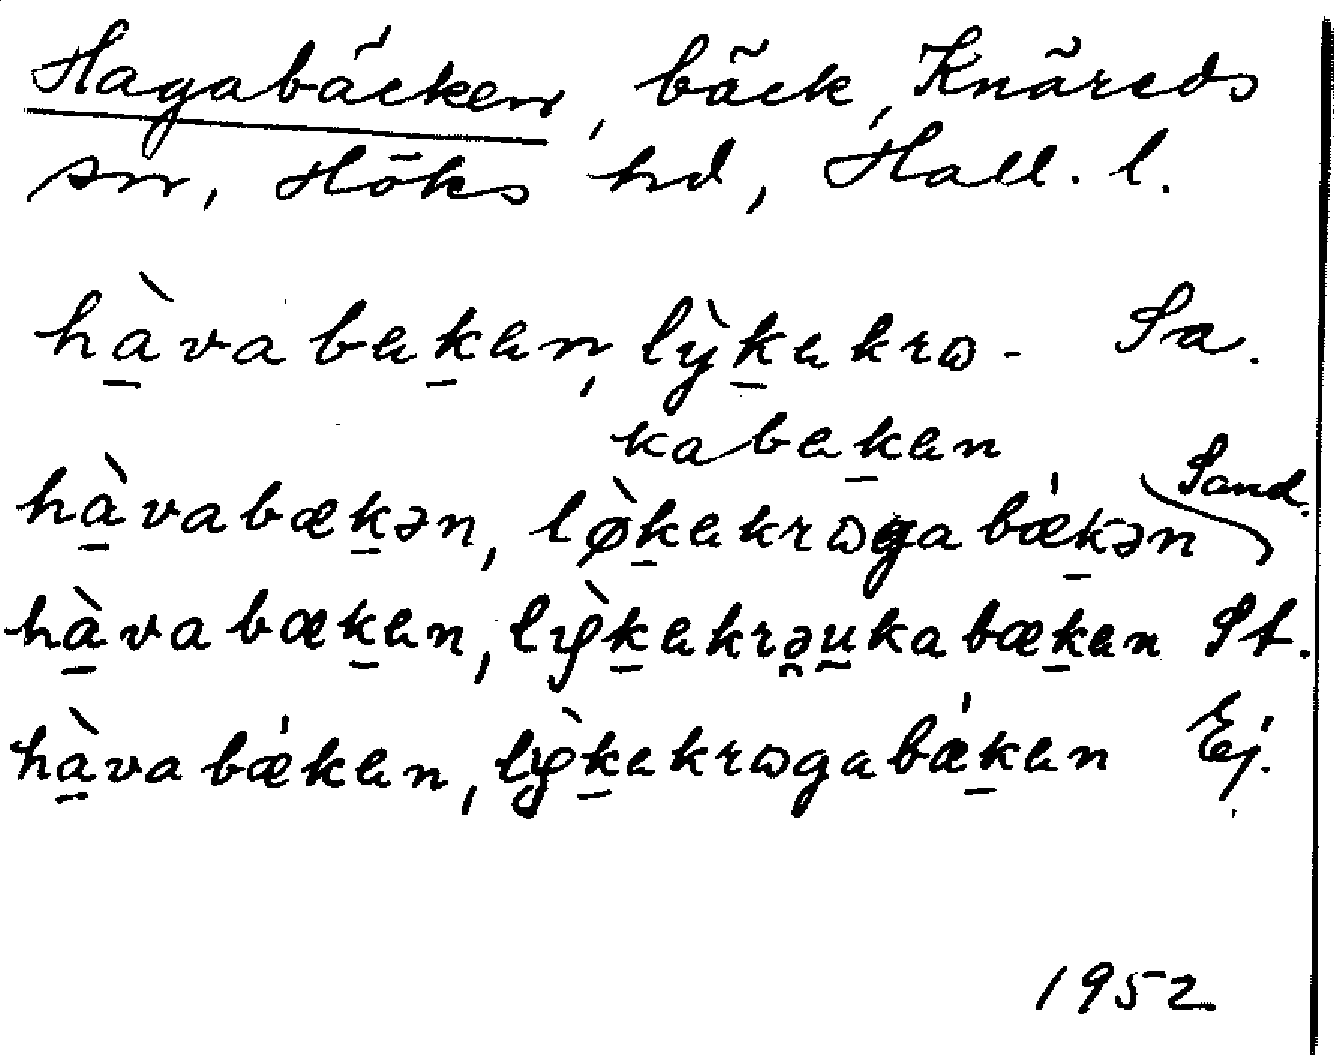 Hagabäcken, bäck, Knäreds
sn, Höks hd, Hall. l.
hàvabekan, lỳkakrɷ- Sa.
kabekan
hàvabækən, lø̀kakrɷgabækən Sand.
hàvabækan, lỳkakrəukabækan St.
hàvabækan, lỳkakrɷgabækan Ej.
1952